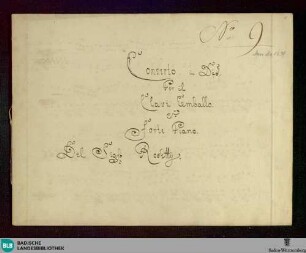 No 9
Concerto in Dis
Per il
Clavi Cemballo
o
Forte Piano.
Del Sigr Rosetty.
BLB BADISCHE
LANDESBIBLIOTHEK
Baden-Württemberg